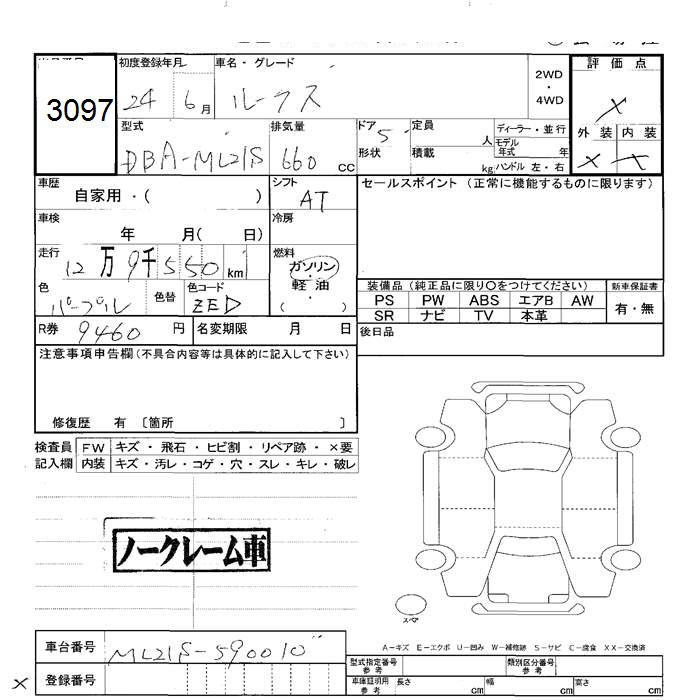 3097
初度登録年月 車名・グレード 評価点
24 6月 ルークス 2WD・4WD X
外装 内装
X X
型式 排気量 ドア 5 定員 人 ディーラー・並行
DBA-ML21S 660cc 形状 積載 kg モデル年式 年
ハンドル 左・右
車歴 自家用・( ) シフト AT セールスポイント(正常に機能するものに限ります)
車検 年 月( 日) 冷房
走行 12万9千550km 燃料 ガソリン・軽油 ( ・ )
色 パープル 色替 色コード ZED
装備品(純正品に限り○をつけてください) 新車保証書
PS PW ABS エアB AW 有・無
SR ナビ TV 本革
R券 9460円 名変期限 月 日 後日品
注意事項申告欄(不具合内容等は具体的に記入して下さい)
修復歴 有 〔箇所 〕
検査員 FW キズ・飛石・ヒビ割・リペア跡・×要
記入欄 内装 キズ・汚レ・コゲ・穴・スレ・キレ・破レ
ノークレーム車
スペア
車台番号 ML21S-590010
A-キズ E-エクボ U-凹み W-補修跡 S-サビ C-腐食 XX-交換済
× 登録番号
型式指定番号 参考 類別区分番号 参考
車庫証明用 参考 長さ cm 幅 cm 高さ cm